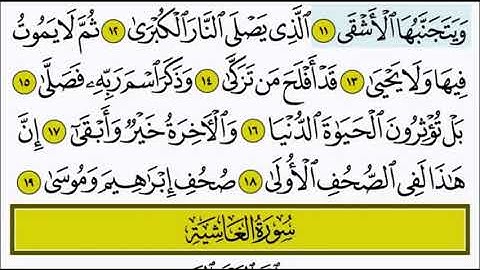 وَيَتَجَنَّبُهَا ٱلْأَشْقَى ١١ ٱلَّذِي يَصْلَى ٱلنَّارَ ٱلْكُبْرَىٰ ١٢ ثُمَّ لَا يَمُوتُ
فِيهَا وَلَا يَحْيَىٰ ١٣ قَدْ أَفْلَحَ مَن تَزَكَّىٰ ١٤ وَذَكَرَ ٱسْمَ رَبِّهِۦ فَصَلَّىٰ ١٥
بَلْ تُؤْثِرُونَ ٱلْحَيَوٰةَ ٱلدُّنْيَا ١٦ وَٱلْأٓخِرَةُ خَيْرٌ وَأَبْقَىٰٓ ١٧ إِنَّ
هَٰذَا لَفِي ٱلصُّحُفِ ٱلْأُولَىٰ ١٨ صُحُفِ إِبْرَٰهِيمَ وَمُوسَىٰ ١٩
سُورَةُ ٱلْغَاشِيَةِ